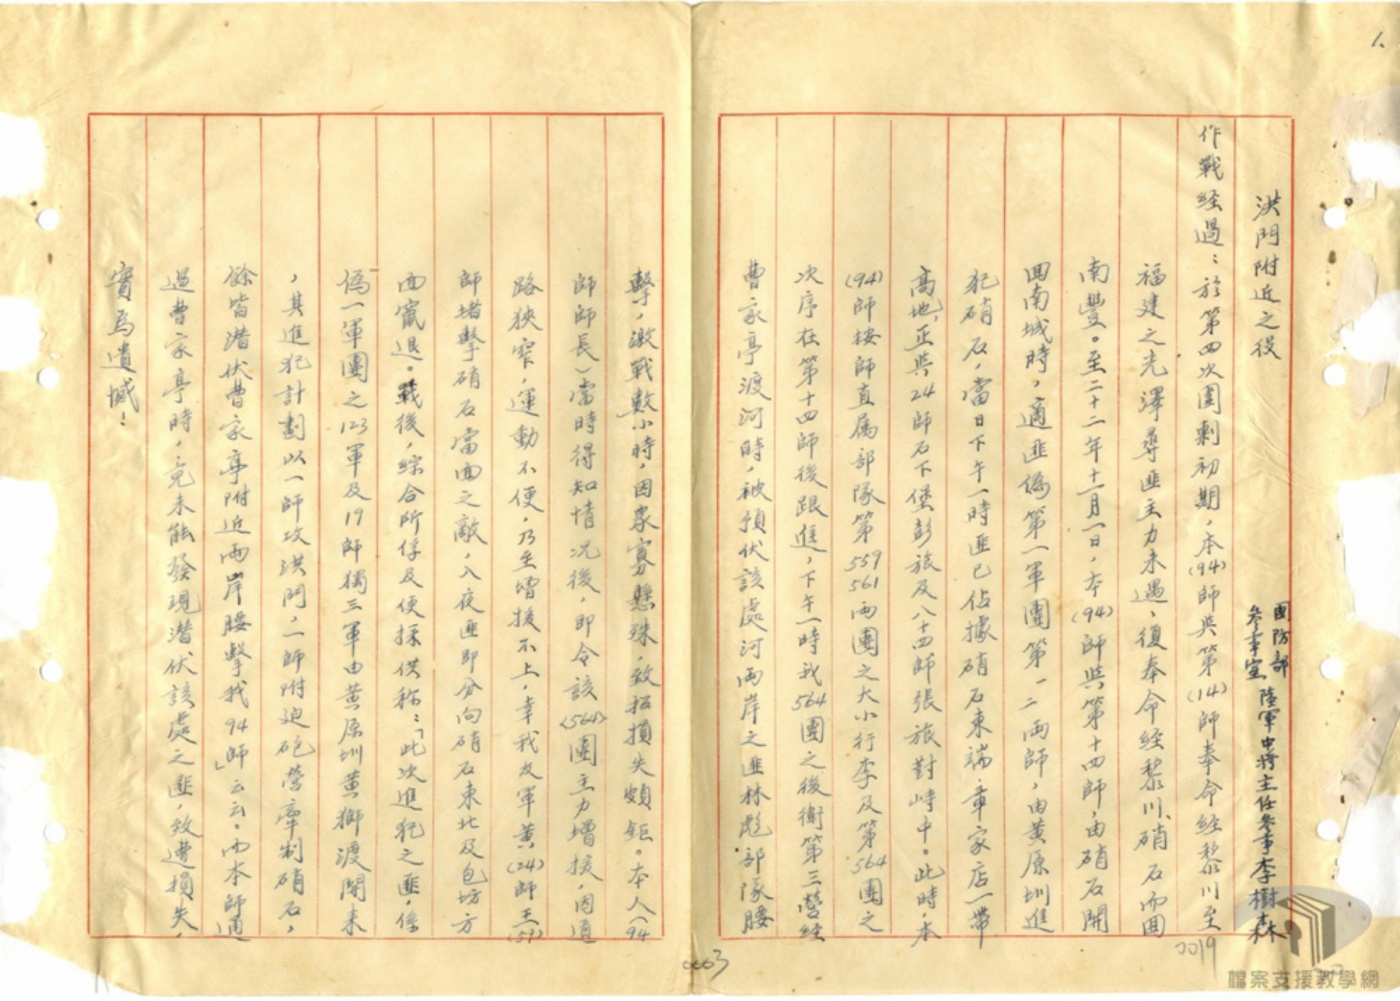 1.
洪門附近之役
國防部
參軍室
陸軍中將主任參軍李樹森
作戰經過：於第四次圍剿初期，本(94)師與第(14)師奉命經黎川至
福建之光澤尋匪主力未遇，復奉命經黎川、硝石而回
南豐。至二十二年十二月一日，本(94)師與第十四師，由硝石開
回南城時，適匪偽第一軍團第一二兩師，由黃原圳進
犯硝石，當日下午一時匪已佔據硝石東端，章家店一帶
高地，正與24師石下堡彭旅及八十四師張旅對峙中。此時，本
(94)師按師直屬部隊第559 561兩團之大小行李及第564團之
次序在第十四師後跟進，下午一時我564團之後衛第三營經
曹家亭渡河時，被預伏該處河兩岸之匪林彪部隊腰
擊，激戰數小時，因眾寡懸殊，致招損失頗鉅。本人(94
師師長)當時得知情況後，即令該(564)團主力增援，因道
路狹窄，運動不便，乃至增援不上，幸我友軍黃(24)師王(59)
師堵擊硝石當面之敵，入夜匪即分向硝石東北及包坊方
西竄退。戰後，綜合所俘及便探供稱：「此次進犯之匪，係
偽一軍團之123軍及19師獨三軍由黃原圳黃獅渡開來
，其進犯計劃以一師攻洪門，一師附迫砲營牽制硝石，
餘皆潛伏曹家亭附近兩岸腰擊我94師」云云。而本師通
過曹家亭時，竟未能發現潛伏該處之匪，致遭損失，
實為遺憾！
0003
0019
檔案支援教學網